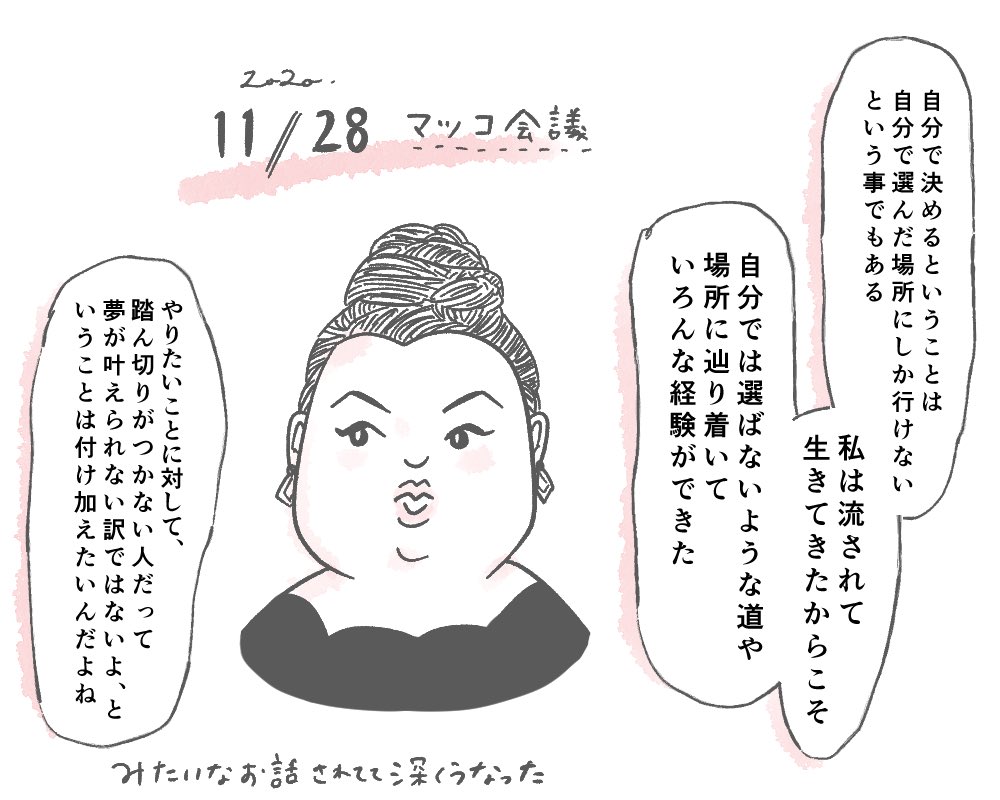 2020.
11/28 マッコ会議
自分で決めるということは
自分で選んだ場所にしか行けない
という事でもある
私は流されて
生きてきたからこそ
自分では選ばないような道や
場所に辿り着いて
いろんな経験ができた
やりたいことに対して、
踏ん切りがつかない人だって
夢が叶えられない訳ではないよ、と
いうことは付け加えたいんだよね
みたいなお話されてて深くうなった